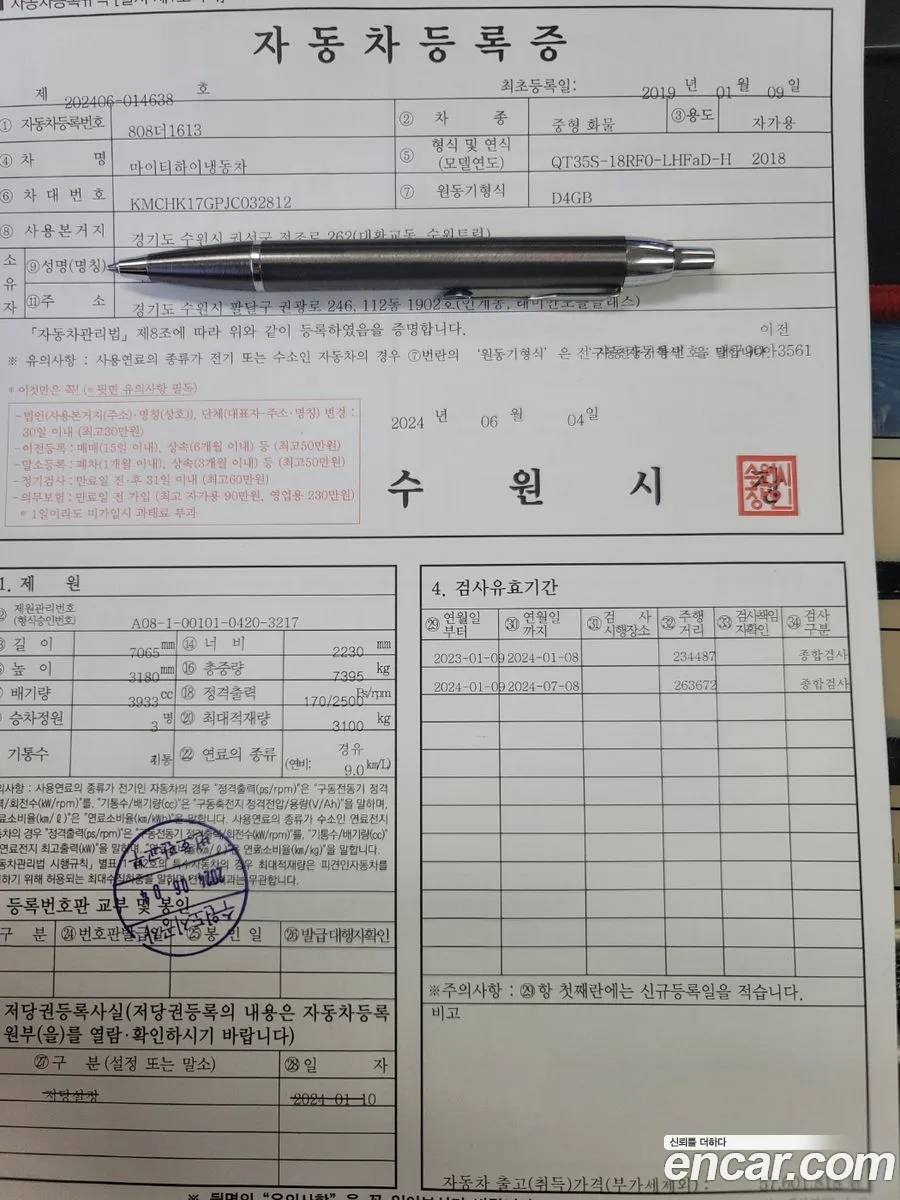 자동차등록증
제 202406-014638 호 최초등록일: 2019 년 01 월 09 일
① 자동차등록번호 808더1613 ② 차 종 중형 화물 ③용도 자가용
④ 차 명 마이티하이냉동차 ⑤ 형식 및 연식 (모델연도) QT35S-18RF0-LHFaD-H 2018
⑥ 차 대 번 호 KMCHK17GPJC032812 ⑦ 원동기형식 D4GB
⑧ 사용본거지 경기도 수원시 권선구
소유자 ⑨성명(명칭)
⑪주 소 경기도 수원시 팔달구 권광로 246, 112동 1902호
「자동차관리법」 제8조에 따라 위와 같이 등록하였음을 증명합니다. 이전
※ 유의사항 : 사용연료의 종류가 전기 또는 수소인 자동차의 경우 ⑦번란의 '원동기형식' 은
* 이것만은 꼭! (※ 뒷면 유의사항 필독)
-법인(사용본거지(주소)·명칭(상호)), 단체(대표자·주소·명칭) 변경 :
30일 이내 (최고30만원)
-이전등록 : 매매(15일 이내), 상속(6개월 이내) 등 (최고50만원)
-말소등록 : 폐차(1개월 이내), 상속(3개월 이내) 등 (최고50만원)
-정기검사 : 만료일 전·후 31일 이내 (최고60만원)
-의무보험 : 만료일 전 가입 (최고 자가용 90만원, 영업용 230만원)
* 1일이라도 미가입시 과태료 부과
2024 년 06 월 04일
수 원 시 장
1. 제 원
제원관리번호 (형식승인번호) A08-1-00101-0420-3217
길 이 7065 mm ⑭ 너 비 2230 mm
높 이 3180 mm ⑯ 총중량 7395 kg
배기량 3933 cc ⑱ 정격출력 170/2500 Ps/rpm
승차정원 3 명 ⑳ 최대적재량 3100 kg
기통수 4기통 ㉒ 연료의 종류 경유 (연비: 9.0 km/L)
의사항 : 사용연료의 종류가 전기인 자동차의 경우 "정격출력(ps/rpm)"은 "구동전동기 정격
력/회전수(kW/rpm)"를, "기통수/배기량(cc)"은 "구동축전지 정격전압/용량(V/Ah)"을 말하며,
료소비율(km/ℓ)"은 "연료소비율(km/kWh)"을 말합니다. 사용연료의 종류가 수소인 연료전지
동차의 경우 "정격출력(ps/rpm)"은 "구동전동기 정격출력/회전수(kW)"를, "기통수/배기량(cc)"
연료전지 최고출력(kW)"을 말하며, "연료소비율(km/ℓ)"은 연료소비율(km/kg)"을 말합니다.
등록번호판 교부 및 봉인
구 분 ㉔번호판발급일 ㉕봉 인 일 ㉖발급대행자확인
저당권등록사실(저당권등록의 내용은 자동차등록
원부(을)를 열람·확인하시기 바랍니다)
㉗구 분(설정 또는 말소) ㉘일 자
저당설정 2024-01-10
4. 검사유효기간
㉙ 연월일 부터 ㉚ 연월일 까지 ㉛ 검 사 시행장소 ㉜ 주행 거리 ㉝ 검사책임 자확인 ㉞ 검사 구분
2023-01-09 2024-01-08 234487 종합검사
2024-01-09 2024-07-08 263672 종합검사
※주의사항 : ㉙항 첫째란에는 신규등록일을 적습니다.
비고
자동차 출고(취득)가격(부가세제외) :
신뢰를 더하다
encar.com